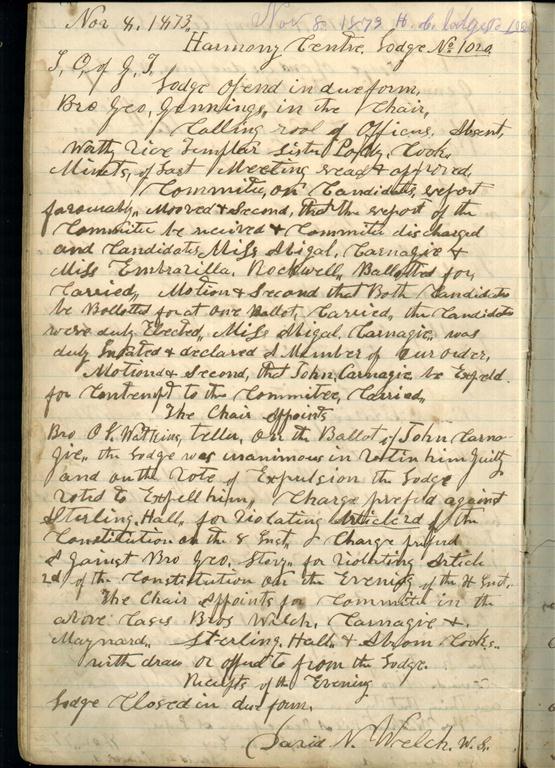 Nov 8, 1873, Nov 8, 1873 H. C. Lodge No 102
Harmony Centre, Lodge No 102
I, O, of G, T,
Lodge Opend in due form,
Bro Geo, Jennings, in the Chair,
Calling rool of Officers, Absent,
Worthy Vice Templar Sister Cook,
Minets, of Last Meeting read & approved,
Committee, on Candidates, report
favorably, Mooved & Second, that the report of the
Committe be received & Committe discharged
and Candidates, Miss Abigal, Carnagie &
Miss Embrazilla, Rockwell, Ballotted for,
Carried, Motion & Second that Both Candidates
be Bollotted for at one Ballot, Carried, the Candidates
were duly Elected, Miss Abigal, Carnagie, was
duly & declared A Member of our order,
Motiond & Second, that John, Carnagie, be Expeld
for Contempt to the Commitee, Carried,
The Chair Appoints
Bro O S, Watkins, teller, on the Ballot of John Carna-
gie, the Lodge was unanimous in votin him Guilty
and on the Vote of Expulsion the Lodge
voted to Expell him, Charge prefed against
Sterling, Hall, for violating Article 2d of the
Constitution on the 8 Inst, & Charge prefed
Against Bro Geo, Story, for violating Article
2d of the Constitution on the Evening of the Inst,
The Chair Appoints for Committe in the
above Cases Bros Welch, Carnagie &
Maynard, Sterling, Hall, & Cooks,
with draw from the Lodge,
Receipts of the Evening
Lodge Closed in due form,
David N. Welch, W. S.